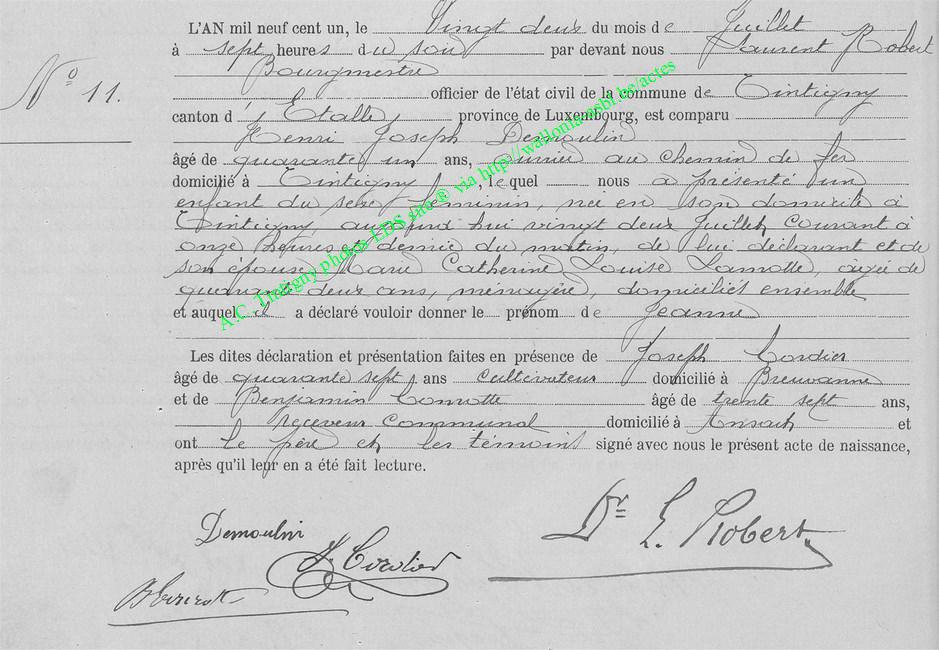 L'AN mil neuf cent un, le Vingt deux du mois de Juillet
à sept heures du soir par devant nous Laurent Robert
Bourgmestre
N° 11.
officier de l'état civil de la commune de Tintigny
canton d' Etalle, province de Luxembourg, est comparu
Henri Joseph Demoulin
âgé de quarante un ans, ouvrier au chemin de fer
domicilié à Tintigny, lequel nous a présenté un
enfant du sexe féminin, née en son domicile à
Tintigny, aujourd'hui vingt deux Juillet courant à
onze heures et demie du matin, de lui déclarant et de
son épouse Marie Catherine Louise Lamotte, âgée de
quarante deux ans, ménagère, domiciliés ensemble
et auquel il a déclaré vouloir donner le prénom de Jeanne
Les dites déclaration et présentation faites en présence de Joseph Cordier
âgé de quarante sept ans cultivateur domicilié à Breuvanne
et de Benjamin âgé de trente sept ans,
receveur communal domicilié à Ansart et
ont le père et les témoins signé avec nous le présent acte de naissance,
après qu'il leur en a été fait lecture.
Demoulin
J. Cordier
Dr L. Robert
A.C. Tintigny photos LDS site® via http://wallonia-asbl.be/actes